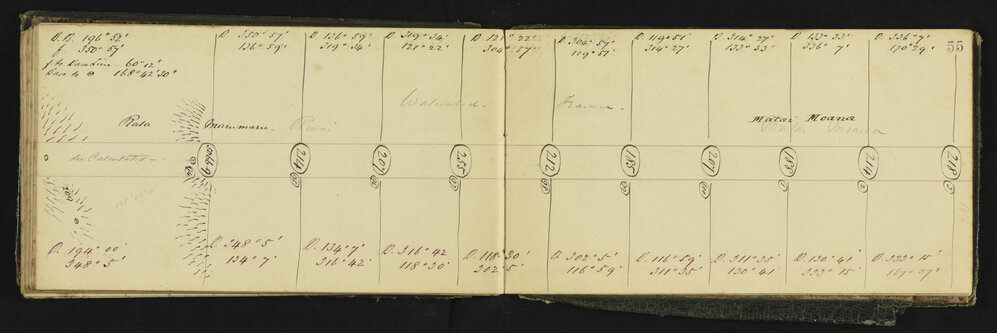 196° 52'
350° 57'
60° 12'
168° 42' 30"
D. 350° 57'
136° 59'
D. 136° 59'
319° 34'
D. 319° 34'
121° 22'
D. 121° 22'
304° 57'
D. 304° 57'
119° 51'
D. 119° 51'
314° 27'
D. 314° 27'
133° 33'
D. 133° 33'
336° 7'
D. 336° 7'
170° 29'
55
Rata
Marumaru.
Matai Moana
Matai Moana
Calculated
214
207
255
212
185
207
188
214
218
D. 194° 00'
348° 5'
D. 348° 5'
134° 7'
D. 134° 7'
316° 42'
D. 316° 42
118° 30'
D. 118° 30'
302° 5'
D. 302° 5'
116° 59'
D. 116° 59'
311° 35'
D. 311° 35'
130° 41'
D. 130° 41'
333° 15'
D. 333° 15'
167° 37'